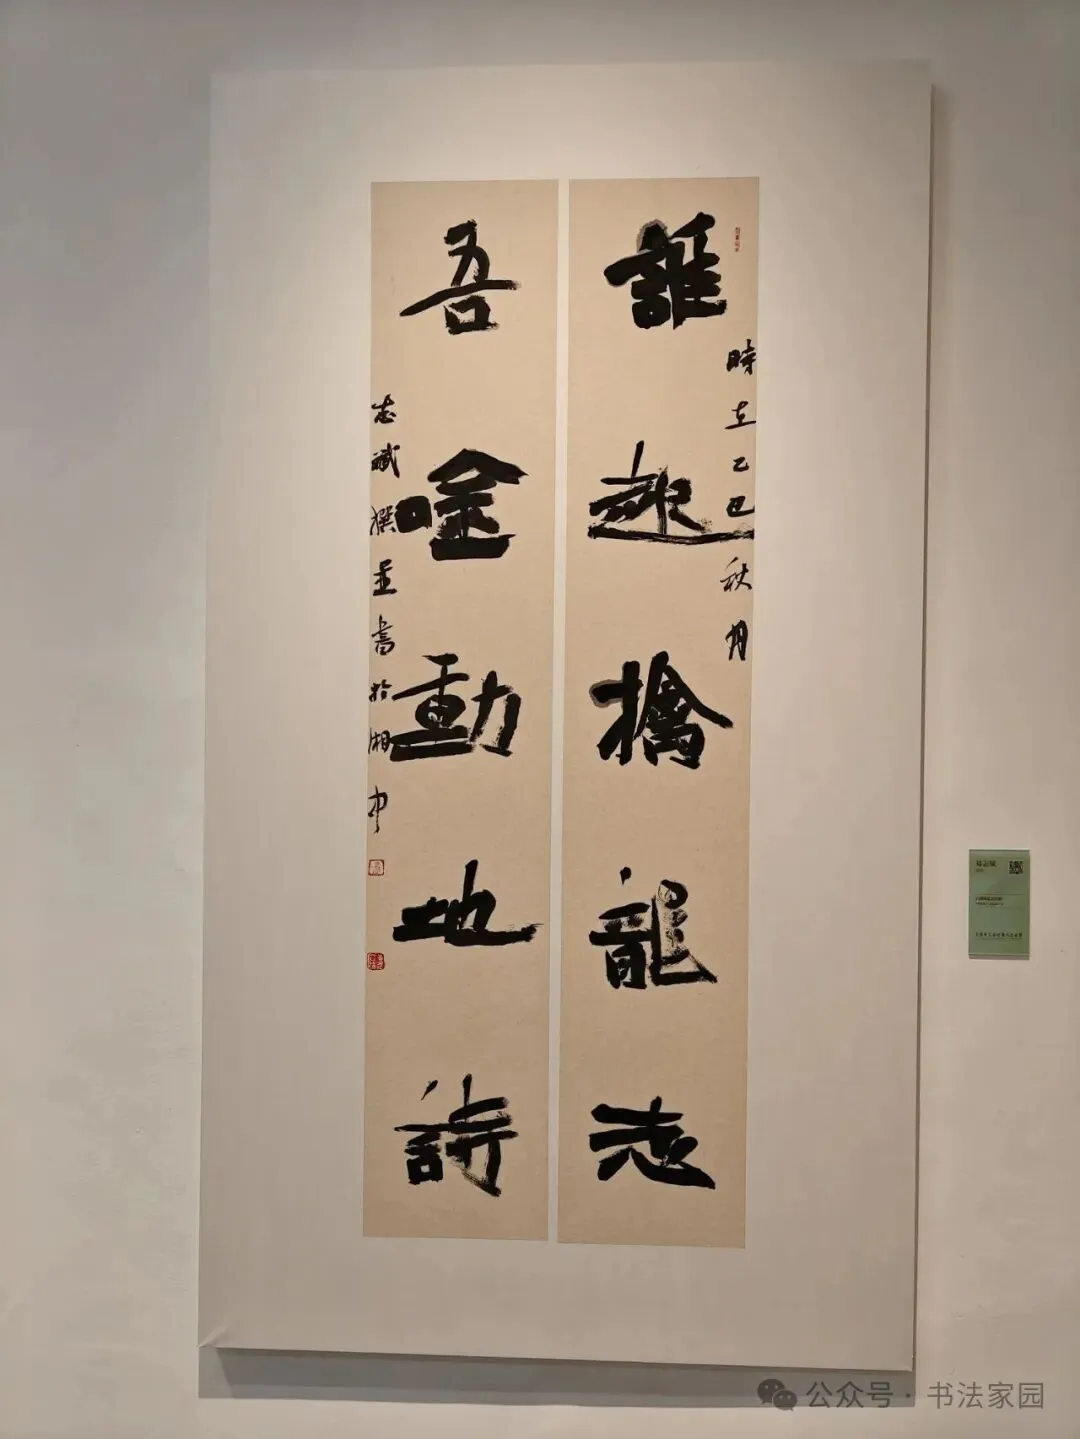 誰趣擒龍志
時在乙巳秋月
吾唫動地詩
志斌撰並書於湘中
公众号 · 书法家园